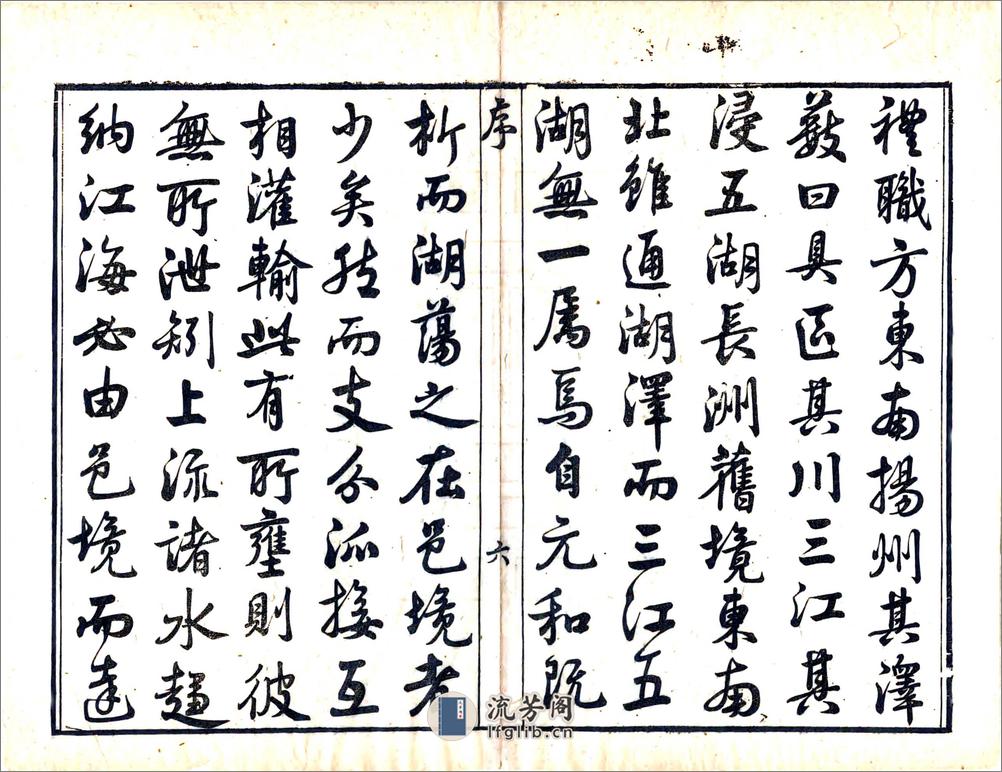 禮職方東南揚州其澤
薮曰具區其川三江其
浸五湖長洲舊境東南
北雖通湖澤而三江五
湖無一屬焉自元和既
序
六
析而湖蕩之在邑境者
少矣然而支分派接互
相灌輸此有所壅則彼
無所泄矧上流諸水趨
納江海必由邑境而達
流芳阁
lfglib.cn